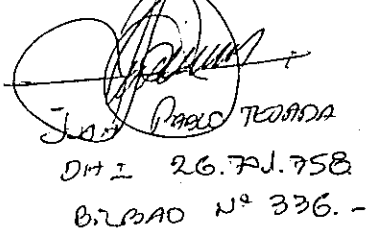 Juan Pablo Tejada
DNI 26.721.758
Bilbao Nº 336.-